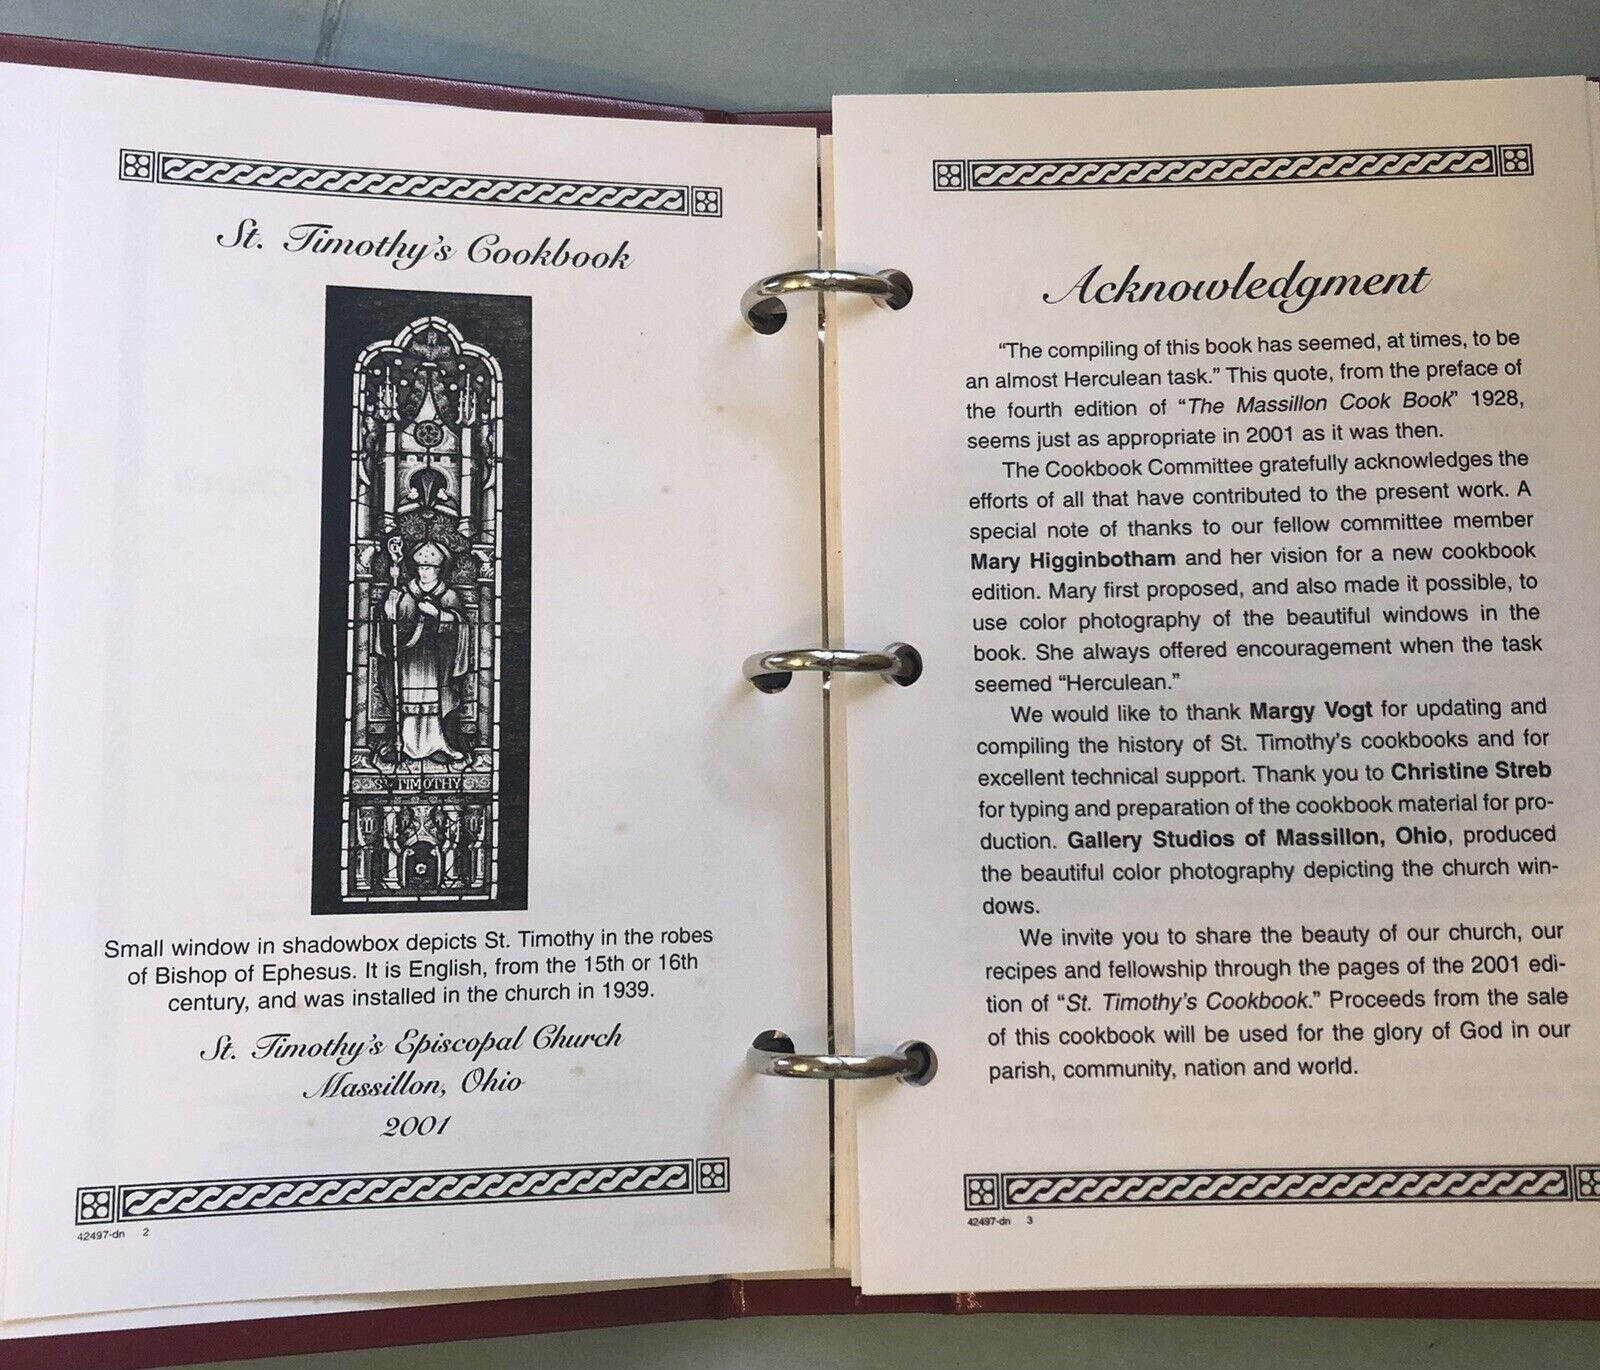 St. Timothy's Cookbook
ST. TIMOTHY
Small window in shadowbox depicts St. Timothy in the robes
of Bishop of Ephesus. It is English, from the 15th or 16th
century, and was installed in the church in 1939.
St. Timothy's Episcopal Church
Massillon, Ohio
2001
42497-dn 2
Acknowledgment
“The compiling of this book has seemed, at times, to be
an almost Herculean task.” This quote, from the preface of
the fourth edition of “The Massillon Cook Book” 1928,
seems just as appropriate in 2001 as it was then.
The Cookbook Committee gratefully acknowledges the
efforts of all that have contributed to the present work. A
special note of thanks to our fellow committee member
Mary Higginbotham and her vision for a new cookbook
edition. Mary first proposed, and also made it possible, to
use color photography of the beautiful windows in the
book. She always offered encouragement when the task
seemed “Herculean.”
We would like to thank Margy Vogt for updating and
compiling the history of St. Timothy's cookbooks and for
excellent technical support. Thank you to Christine Streb
for typing and preparation of the cookbook material for pro-
duction. Gallery Studios of Massillon, Ohio, produced
the beautiful color photography depicting the church win-
dows.
We invite you to share the beauty of our church, our
recipes and fellowship through the pages of the 2001 edi-
tion of “St. Timothy's Cookbook.” Proceeds from the sale
of this cookbook will be used for the glory of God in our
parish, community, nation and world.
42497-dn 3